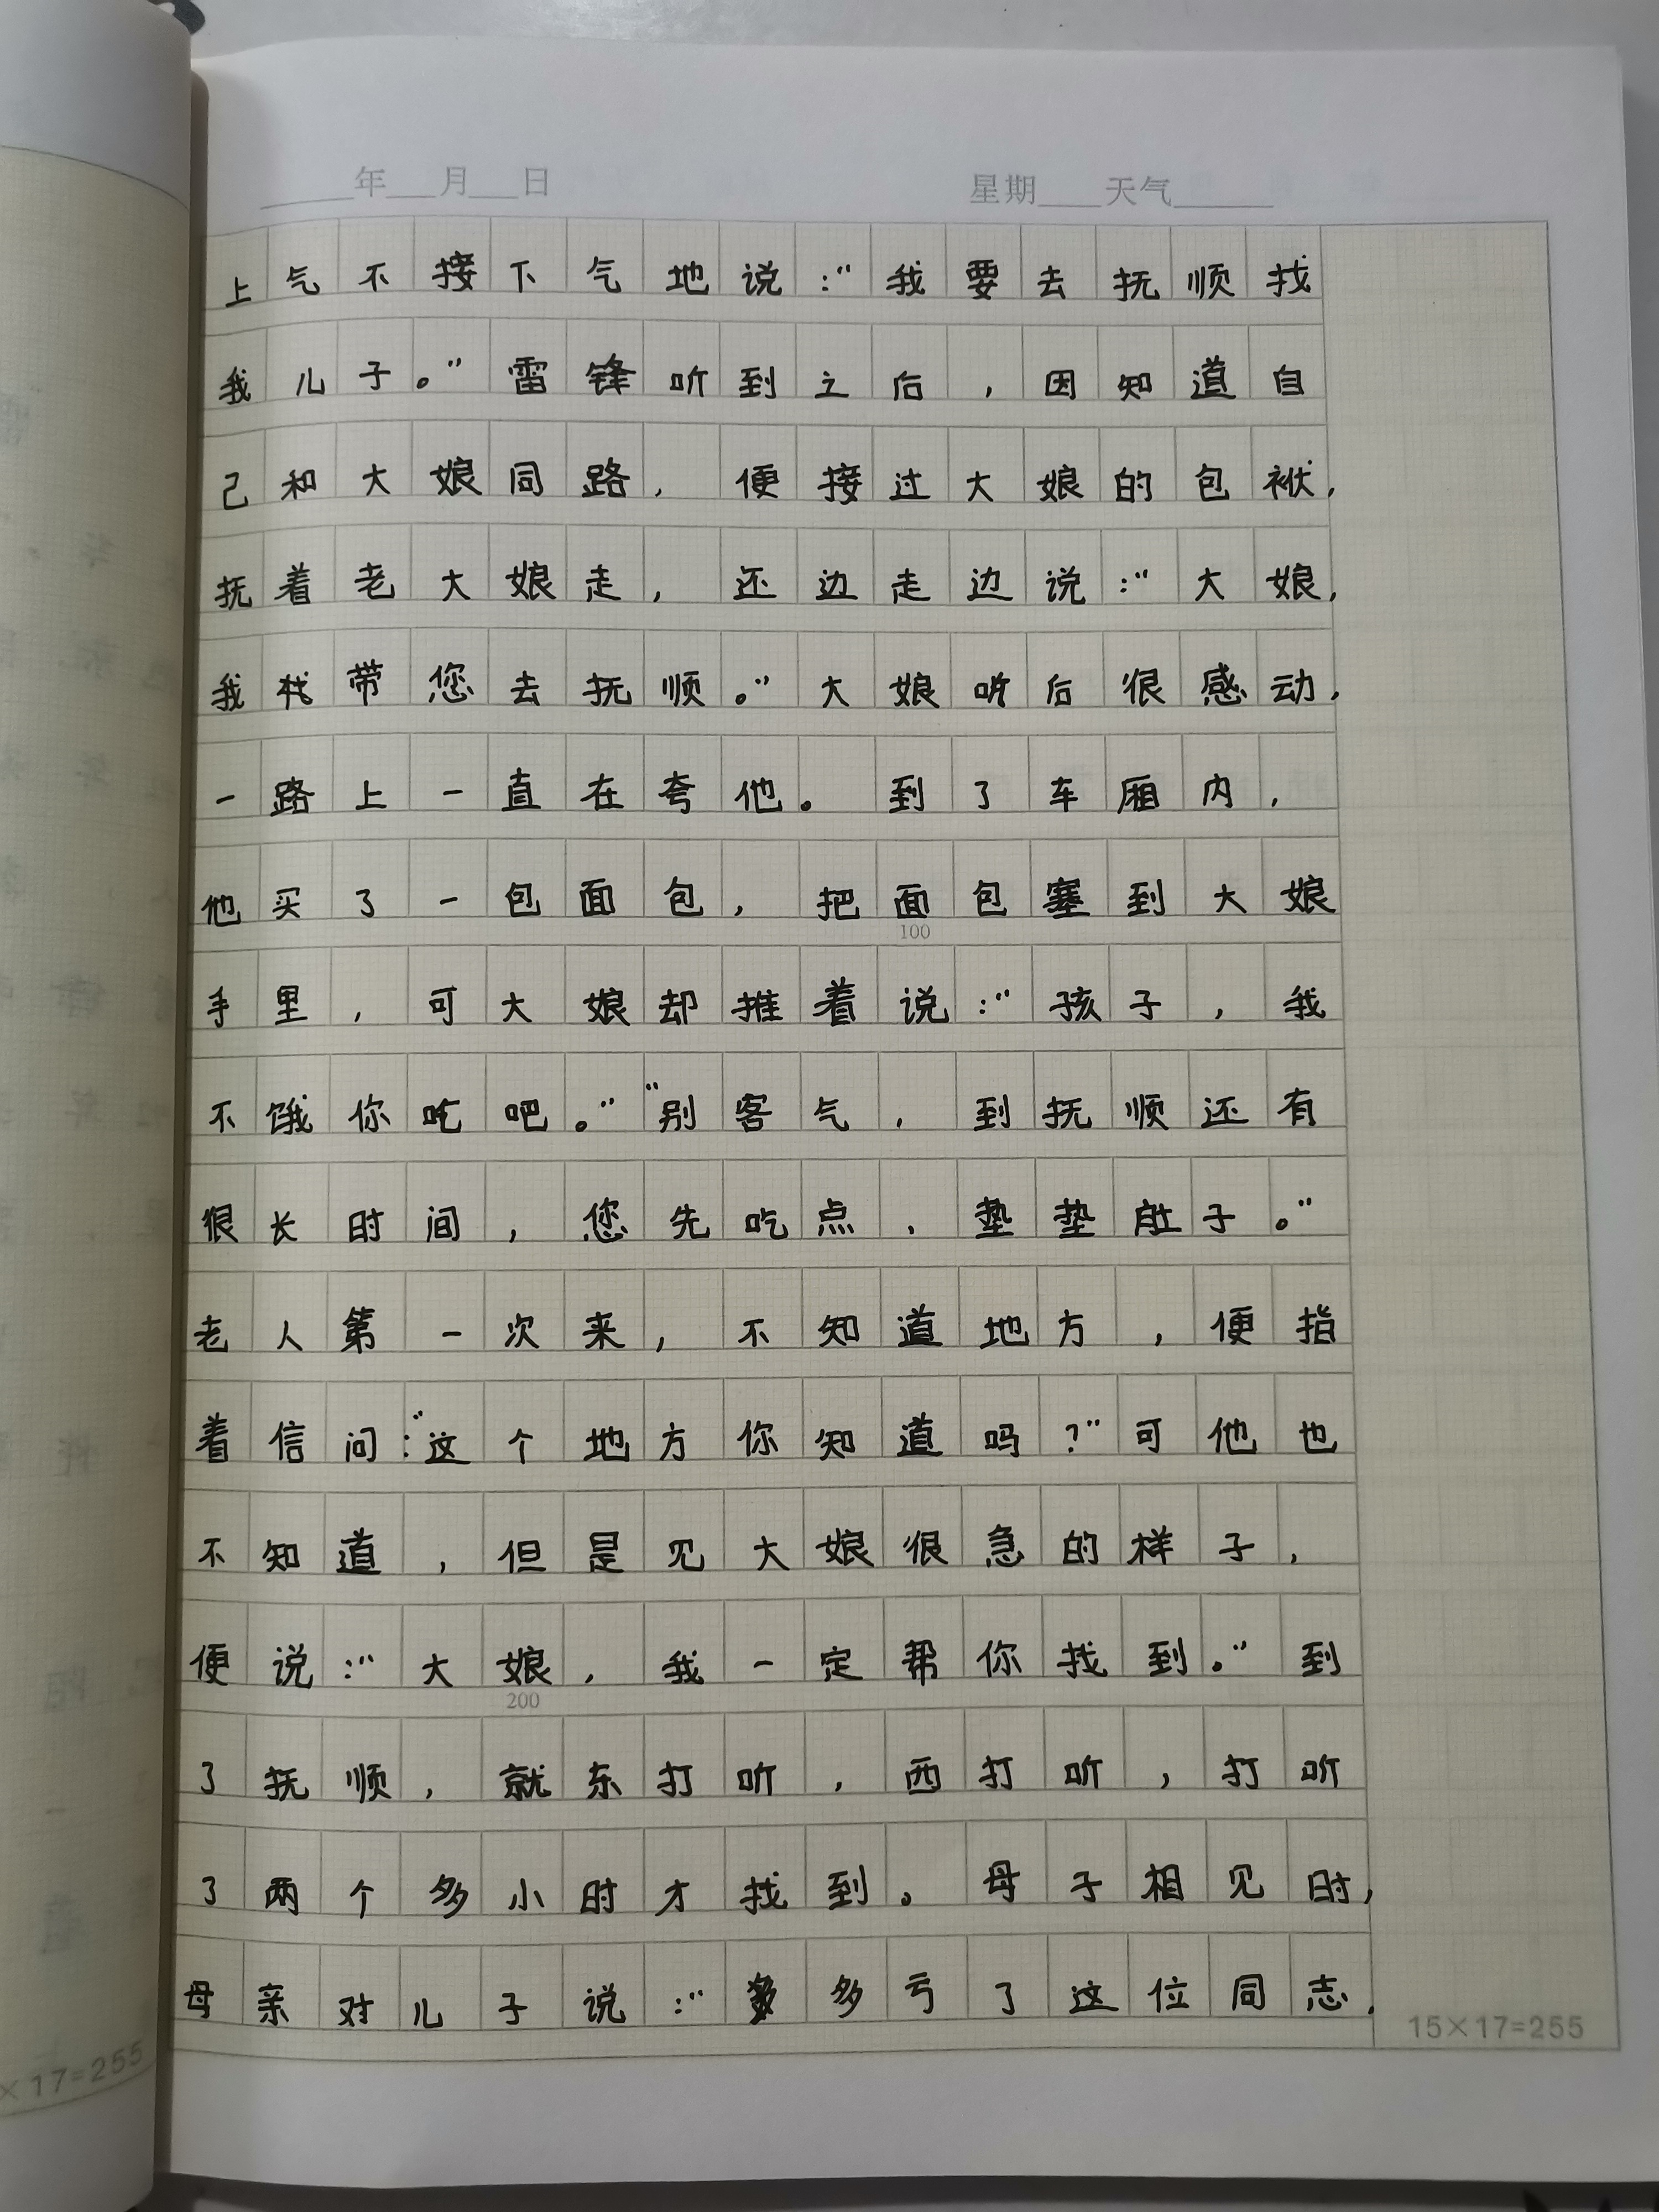 ____年__月__日 星期___天气____
上气不接下气地说:“我要去抚顺找
我儿子。”雷锋听到之后,因知道自
己和大娘同路,便接过大娘的包袱,
抚着老大娘走,还边走边说:“大娘,
我我带您去抚顺。”大娘听后很感动,
一路上一直在夸他。到了车厢内,
他买了一包面包,把面包塞到大娘
100
手里,可大娘却推着说:“孩子,我
不饿你吃吧。”“别客气,到抚顺还有
很长时间,您先吃点,垫垫肚子。”
老人第一次来,不知道地方,便指
着信问:“这个地方你知道吗?”可他也
不知道,但是见大娘很急的样子,
便说:“大娘,我一定帮你找到。”到
200
了抚顺,就东打听,西打听,打听
了两个多小时才找到。母子相见时,
母亲对儿子说:“多多亏了这位同志,
15×17=255
×17=255